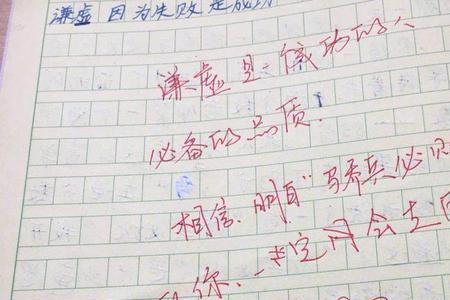 谦虚 因为失败是成功
谦虚是成功的人
必备的品质.
相信.明白"骄兵必
你、一定会